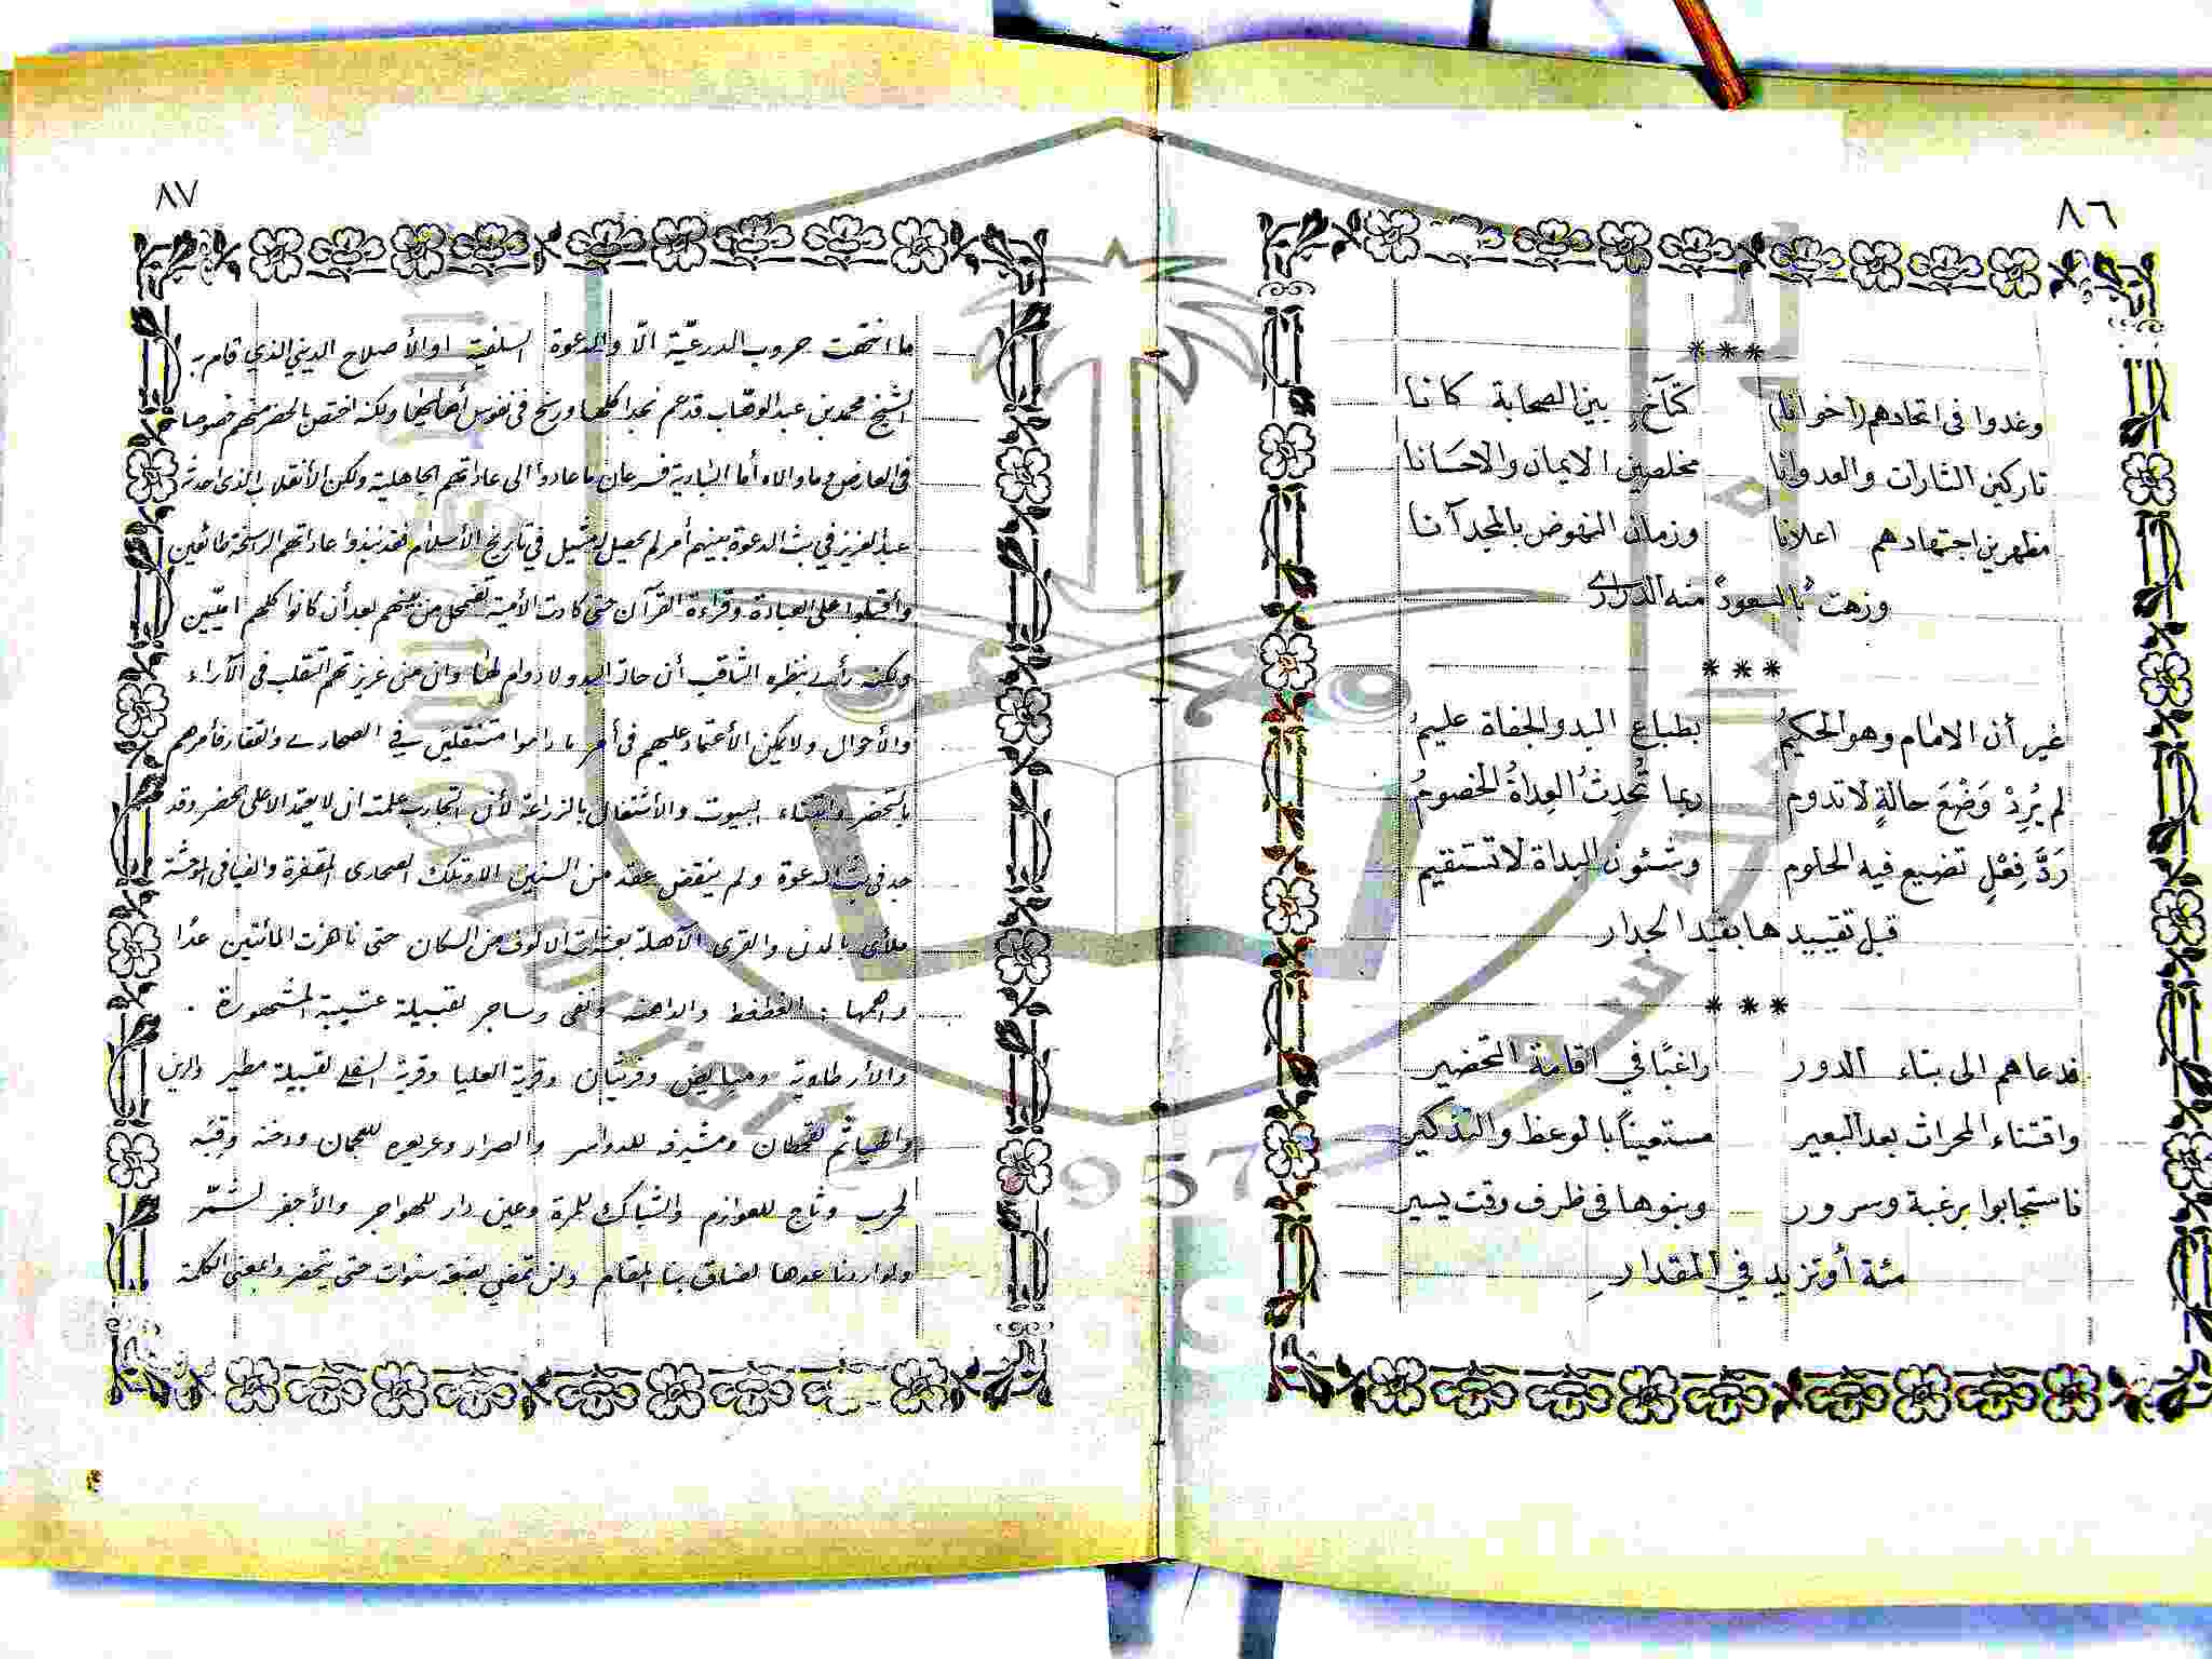 ٨٦
***
وغدوا فى اتحادهم (اخوانا) كتآخٍ بين الصحابة كانا
تاركين الثارات والعدوانا مخلصين الايمان والاحسانا
مظهرين اجتهادهم اعلانا وزمان النهوض بالمجد آنا
وزهت بالسعود منه الدرارى
***
غير أن الامام وهو الحكيمُ بطباع البدو الجفاة عليمُ
لم يُرِدْ وَضْعَ حالةٍ لا تدوم ربما تُحدِثُ العِداةُ الخصومُ
رَدَّ فِعْلٍ تضيع فيه الحلوم وشئون البداة لا تستقيم
قبل تقييدها بقيد الجدار
***
فدعاهم الى بناء الدور راغبًا في اقامة التحضير
واقتناء المحراث بعد البعير مستعيناً بالوعظ والتذكير
فاستجابوا برغبة وسرور وبنوها فى ظرف وقت يسير
مئة أو تزيد في المقدارِ
٨٧
ما انتهت حروب الدرعيّة الّا والدعوة السلفية او الأصلاح الديني الذي قام به
الشيخ محمد بن عبد الوهّاب قد عم نجدا كلها ورسخ فى نفوس أهاليها ولكنه اختص بالحضر منهم خصوصا
فى العارض وما والاه أما البادية فسرعان ما عادوا الى عاداتهم الجاهلية ولكن الأنقلاب الذى احدثه
عبد العزيز في بث الدعوة بينهم أمر لم يحصل له مثيل في تاريخ الأسلام فقد نبذوا عاداتهم الراسخة طائعين
وأقبلوا على العبادة وقراءة القرآن حتى كادت الأمية تضمحل من بينهم بعد أن كانوا كلهم اميّين
ولكنه رأى بنظره الثاقب أن حالة البدو لا دوام لها وان من غريزتهم التقلب فى الآراء
والأحوال ولا يمكن الأعتماد عليهم فى أمر ما داموا متنقلين في الصحارى والقفار فأمرهم
بالتحضر واقتناء البيوت والأشتغال بالزراعة لأن التجارب علمته ان لا يعتمد الا على الحضر وقد
جد فى بث الدعوة ولم ينقض عقد من السنين الا وتلك الصحارى المقفرة والفيافى الموحشة
ملأى بالمدن والقرى الآهلة بعشرات الالوف من السكان حتى ناهزت المائتين عدًا
واهمها : الغطغط والداهنه ونفى وساجر لقبيلة عتيبة المشهورة .
والأرطاوية ومبايض وفريثان وقرية العليا وقرية السفلى لقبيلة مطير والرين
والهياثم لقحطان ومشيرفه للدواسر والصرار وعريعره للعجمان ودخنه وقبّه
لحرب وثاج للعوازم والشباك للمرة وعين دار للهواجر والأجفر لشمّر
ولو اردنا عدها لضاق بنا المقام ولن تمضي بضعة سنوات حتى يتحضروا بمعنى الكلمة
1957